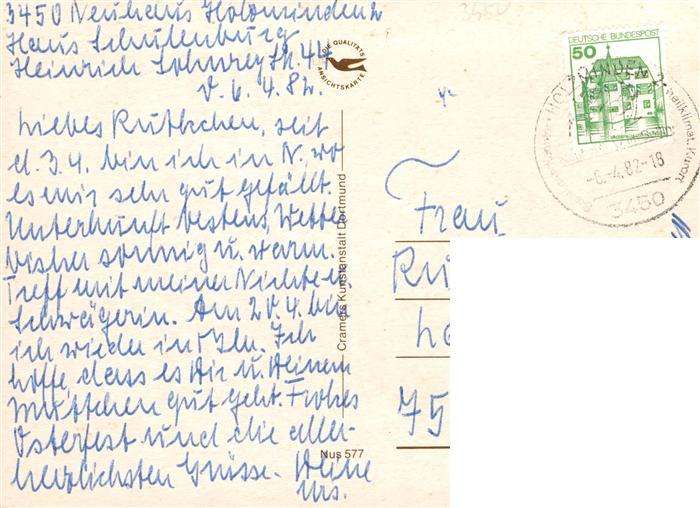 3450 Neuhaus Holzminden 2
Haus Schulenburg
Heinrich Sohnrey Str. 44
d. 6. 4. 82.
Liebes Ruthchen, seit
d. 3.4. bin ich in N., wo
es mir sehr gut gefällt.
Unterkunft bestens, Wetter
bisher sonnig u. warm.
Treff mit meiner Nichte u.
Schwägerin. Am 20.4. bin
ich wieder in Bln. Ich
hoffe, dass es Dir u. Deinem
Muttchen gut geht. Frohes
Osterfest und die aller-
herzlichsten Grüsse. Deine
Urs.
DIE QUALITÄTS
ANSICHTSKARTE
Cramers Kunstanstalt Dortmund
Nus 577
DEUTSCHE BUNDESPOST
50
HOLZMINDEN 2
heilklimat. Kurort
-6.-4.82-18
3450
Frau
Ru
75